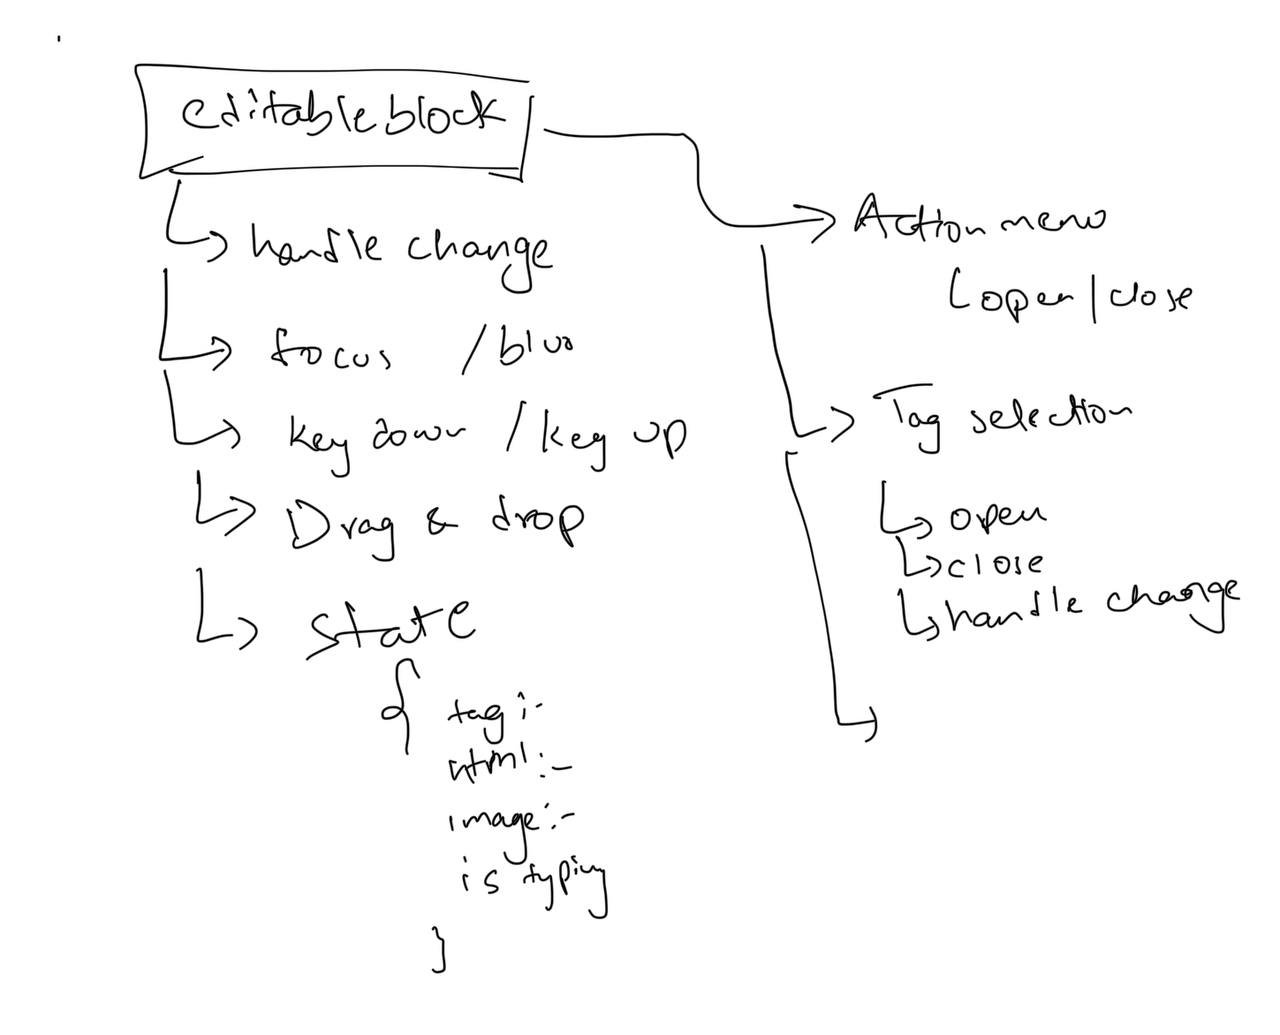 editableblock
handle change
focus /blur
key down / key up
Drag & drop
state
{
tag :-
html :-
image :-
is typing
}
Action menu
open / close
Tag selection
open
close
handle change